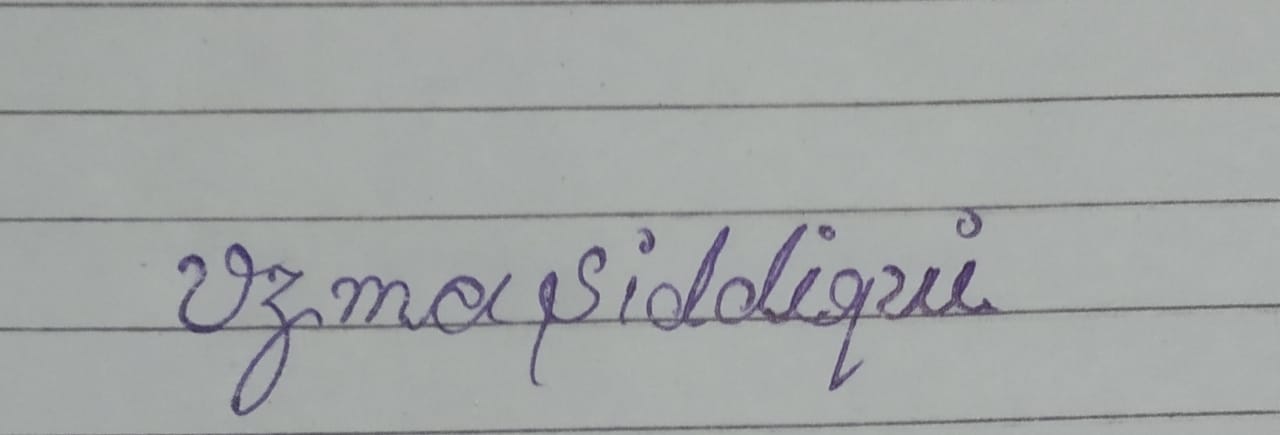 Uzma Siddiqui